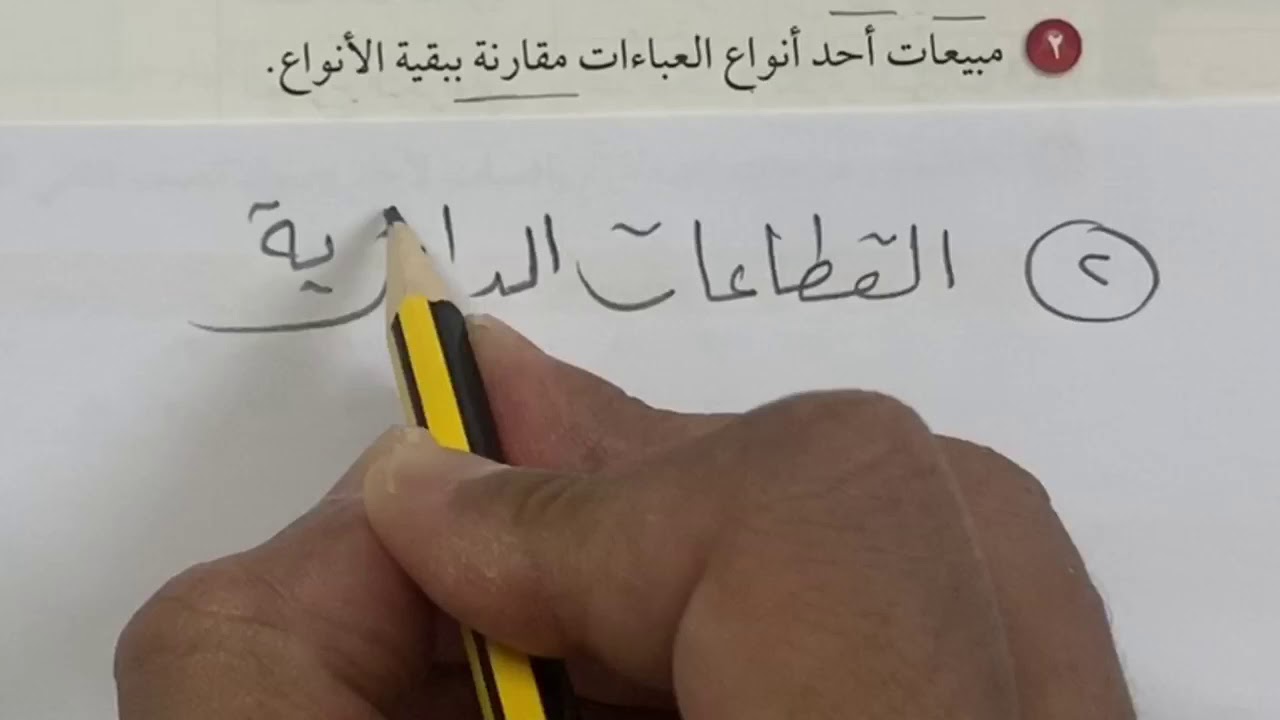 ٢ مبيعات أحد أنواع العباءات مقارنة ببقية الأنواع.
٢ القطاعات الدائرية